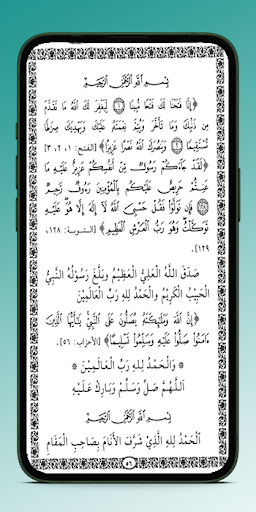 بِسْمِ اللَّهِ الرَّحْمَنِ الرَّحِيمِ
﴿إِنَّا فَتَحْنَا لَكَ فَتْحًا مُبِينًا ۝ لِيَغْفِرَ لَكَ اللَّهُ مَا تَقَدَّمَ
مِن ذَنْبِكَ وَمَا تَأَخَّرَ وَيُتِمَّ نِعْمَتَهُ عَلَيْكَ وَيَهْدِيَكَ صِرَاطًا
مُسْتَقِيمًا ۝ وَيَنْصُرَكَ اللَّهُ نَصْرًا عَزِيزًا﴾ [الفتح: ١، ٢، ٣]
﴿لَقَدْ جَاءَكُمْ رَسُولٌ مِنْ أَنْفُسِكُمْ عَزِيزٌ عَلَيْهِ مَا
عَنِتُّمْ حَرِيصٌ عَلَيْكُمْ بِالْمُؤْمِنِينَ رَءُوفٌ رَحِيمٌ
۝ فَإِن تَوَلَّوْا فَقُلْ حَسْبِيَ اللَّهُ لَا إِلَهَ إِلَّا هُوَ عَلَيْهِ
تَوَكَّلْتُ وَهُوَ رَبُّ الْعَرْشِ الْعَظِيمِ﴾ [التوبة: ١٢٨،
١٢٩].
صَدَقَ اللَّهُ الْعَلِيُّ الْعَظِيمُ وَبَلَّغَ رَسُولُهُ النَّبِيُّ
الْحَبِيبُ الْكَرِيمُ وَالْحَمْدُ لِلهِ رَبِّ الْعَالَمِينَ
﴿إِنَّ اللَّهَ وَمَلَائِكَتَهُ يُصَلُّونَ عَلَى النَّبِيِّ يَا أَيُّهَا الَّذِينَ
ءَامَنُوا صَلُّوا عَلَيْهِ وَسَلِّمُوا تَسْلِيمًا﴾ [الأحزاب: ٥٦].
* وَالْحَمْدُ لِلهِ رَبِّ الْعَالَمِينَ *
اَللَّهُمَّ صَلِّ وَسَلِّمْ وَبَارِكْ عَلَيْهِ
بِسْمِ اللَّهِ الرَّحْمَنِ الرَّحِيمِ
اَلْحَمْدُ لِلهِ الَّذِي شَرَّفَ الْأَنَامَ بِصَاحِبِ الْمَقَامِ
٥٦